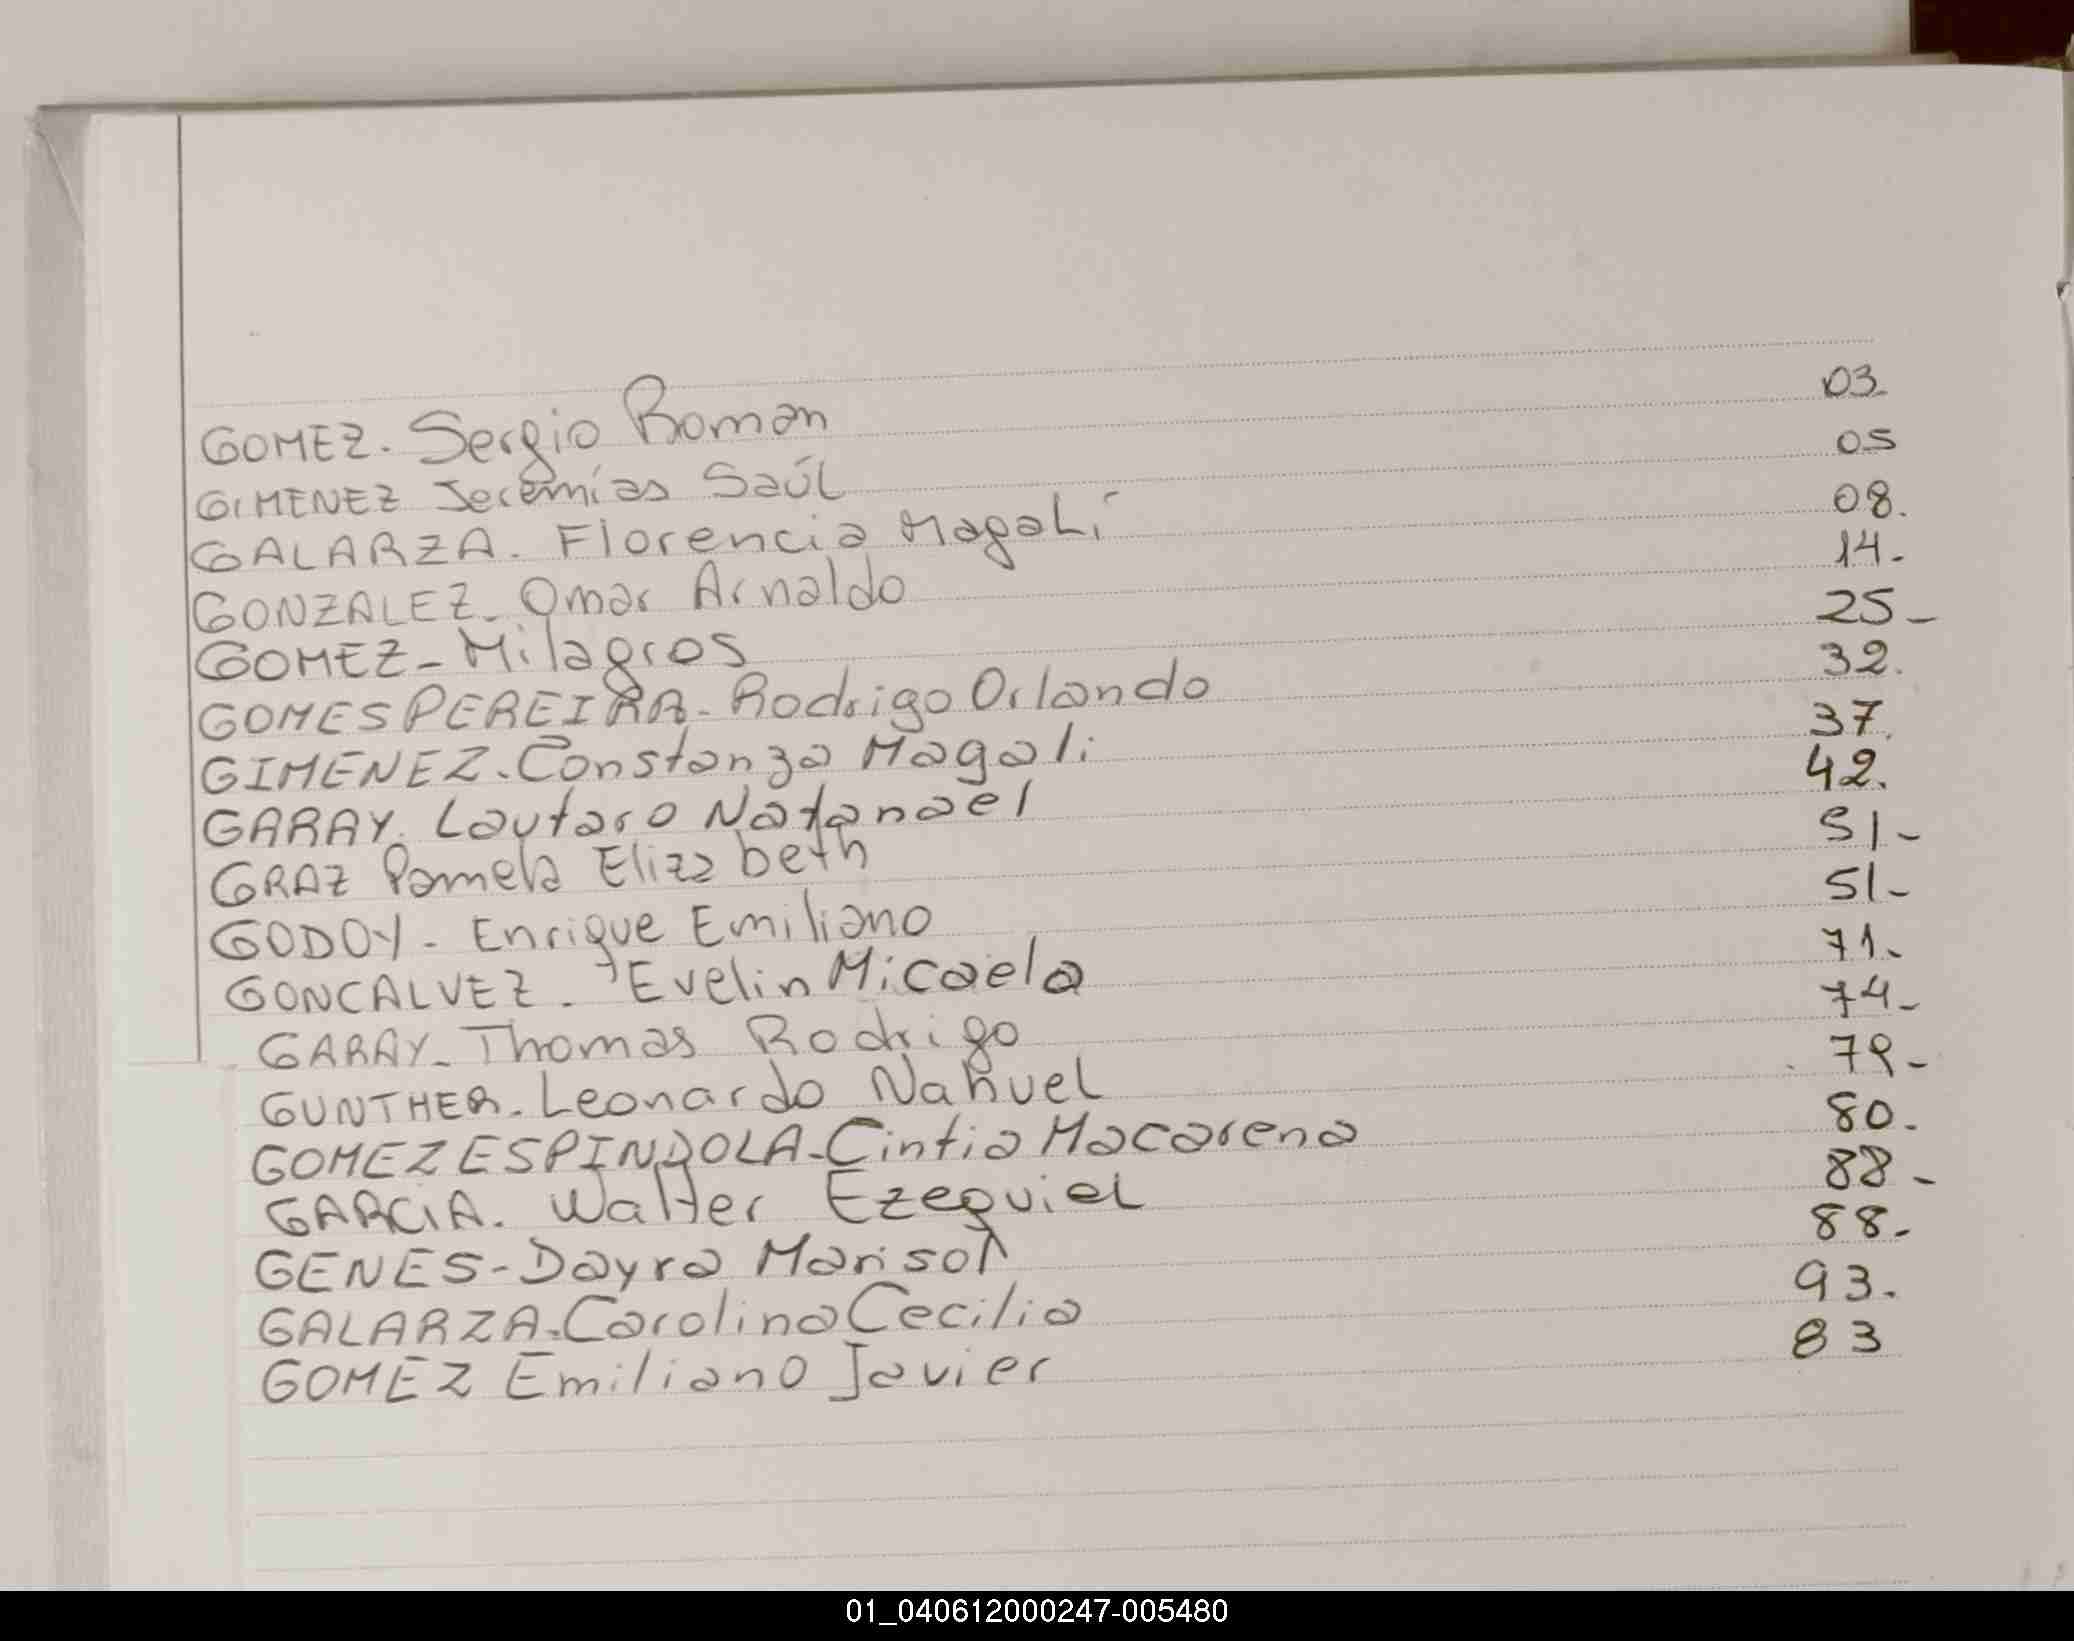 GOMEZ. Sergio Roman 03.
GIMENEZ Jeremías Saúl 05
GALARZA. Florencia Magalí 08.
GONZALEZ. Omar Arnaldo 14.
GOMEZ- Milagros 25-
GOMES PEREIRA. Rodrigo Orlando 32.
GIMENEZ. Constanza Magali 37.
GARAY. Lautaro Natanael 42.
GRAZ Pamela Elizabeth 51-
GODOY- Enrique Emiliano 51-
GONCALVEZ. Evelin Micaela 71.
GARAY- Thomas Rodrigo 74-
GUNTHER. Leonardo Nahuel 79-
GOMEZ ESPINDOLA- Cintia Macarena 80.
GARCIA. Walter Ezequiel 88-
GENES- Dayra Marisol 88.
GALARZA. Carolina Cecilia 93.
GOMEZ Emiliano Javier 83
01_040612000247-005480